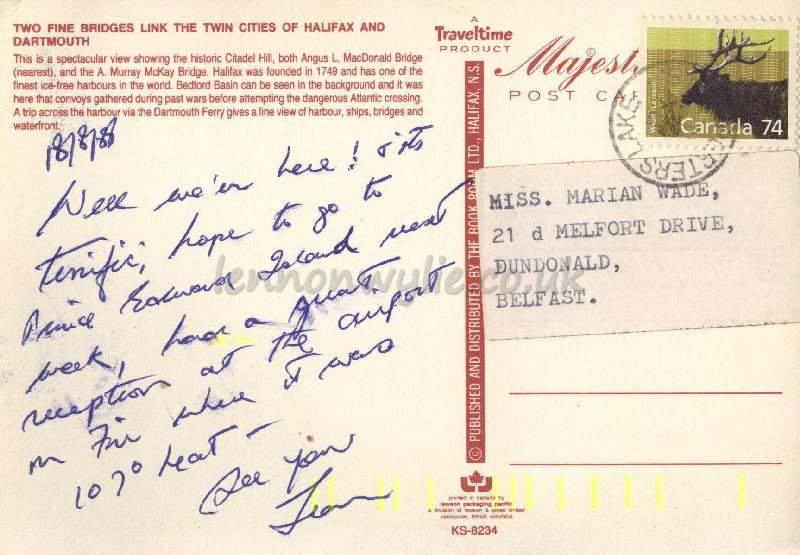 TWO FINE BRIDGES LINK THE TWIN CITIES OF HALIFAX AND
DARTMOUTH
This is a spectacular view showing the historic Citadel Hill, both Angus L. MacDonald Bridge
(nearest), and the A. Murray McKay Bridge. Halifax was founded in 1749 and has one of the
finest ice-free harbours in the world. Bedford Basin can be seen in the background and it was
here that convoys gathered during past wars before attempting the dangerous Atlantic crossing.
A trip across the harbour via the Dartmouth Ferry gives a fine view of harbour, ships, bridges and
waterfront.
18/8/88
Well we're here! & its
terrific, hope to go to
Prince Edward Island next
week, had a great
reception at the airport
on Fri when it was
107° heat -
See you
A
Traveltime
PRODUCT
POST
Canada 74
MISS. MARIAN WADE,
21 d MELFORT DRIVE,
DUNDONALD,
BELFAST.
© PUBLISHED AND DISTRIBUTED BY THE BOOK ROOM LTD., HALIFAX, N.S.
printed in canada by
lawson packaging pacific
a division of lawson & jones limited
vancouver, british columbia
KS-8234
lennonwylie.co.uk